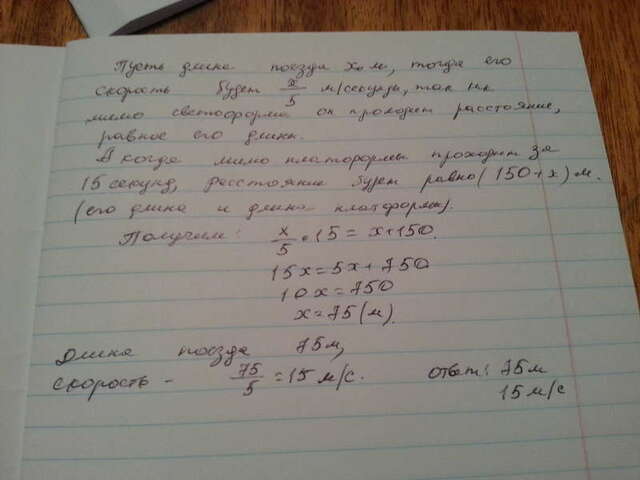 Пусть длина поезда x м, тогда его
скорость будет x/5 м/секунды, так как
мимо светофора он проходит расстояние,
равное его длины.
А когда мимо платформы проходит за
15 секунд, расстояние будет равно (150+x) м.
(его длина и длина платформы).
Получим: x/5 · 15 = x+150.
15x=5x+750
10x=750
x=75(м).
Длина поезда 75м,
скорость - 75/5 = 15 м/с. ответ: 75м
15 м/с